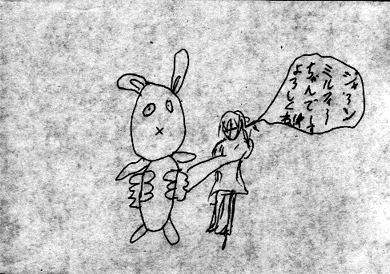 ジャーン
ミルフィー
ちゃんでーす
よろしくね